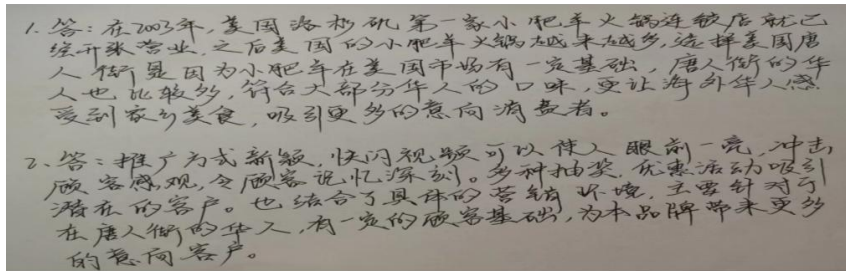 1. 答：在2003年，美国洛杉矶第一家小肥羊火锅连锁店就已
经开张营业，之后美国的小肥羊火锅越来越多，选择美国唐
人街是因为小肥羊在美国市场有一定基础，唐人街的华
人也比较多，符合大部分华人的口味，更让海外华人感
受到家乡美食，吸引更多的意向消费者。
2、答：推广方式新颖，快闪视频可以使人眼前一亮，冲击
顾客感观，令顾客记忆深刻。多种抽奖，优惠活动吸引
潜在的客户。也结合了具体的营销环境，主要针对了
在唐人街的华人，有一定的顾客基础，为本品牌带来更多
的意向客户。